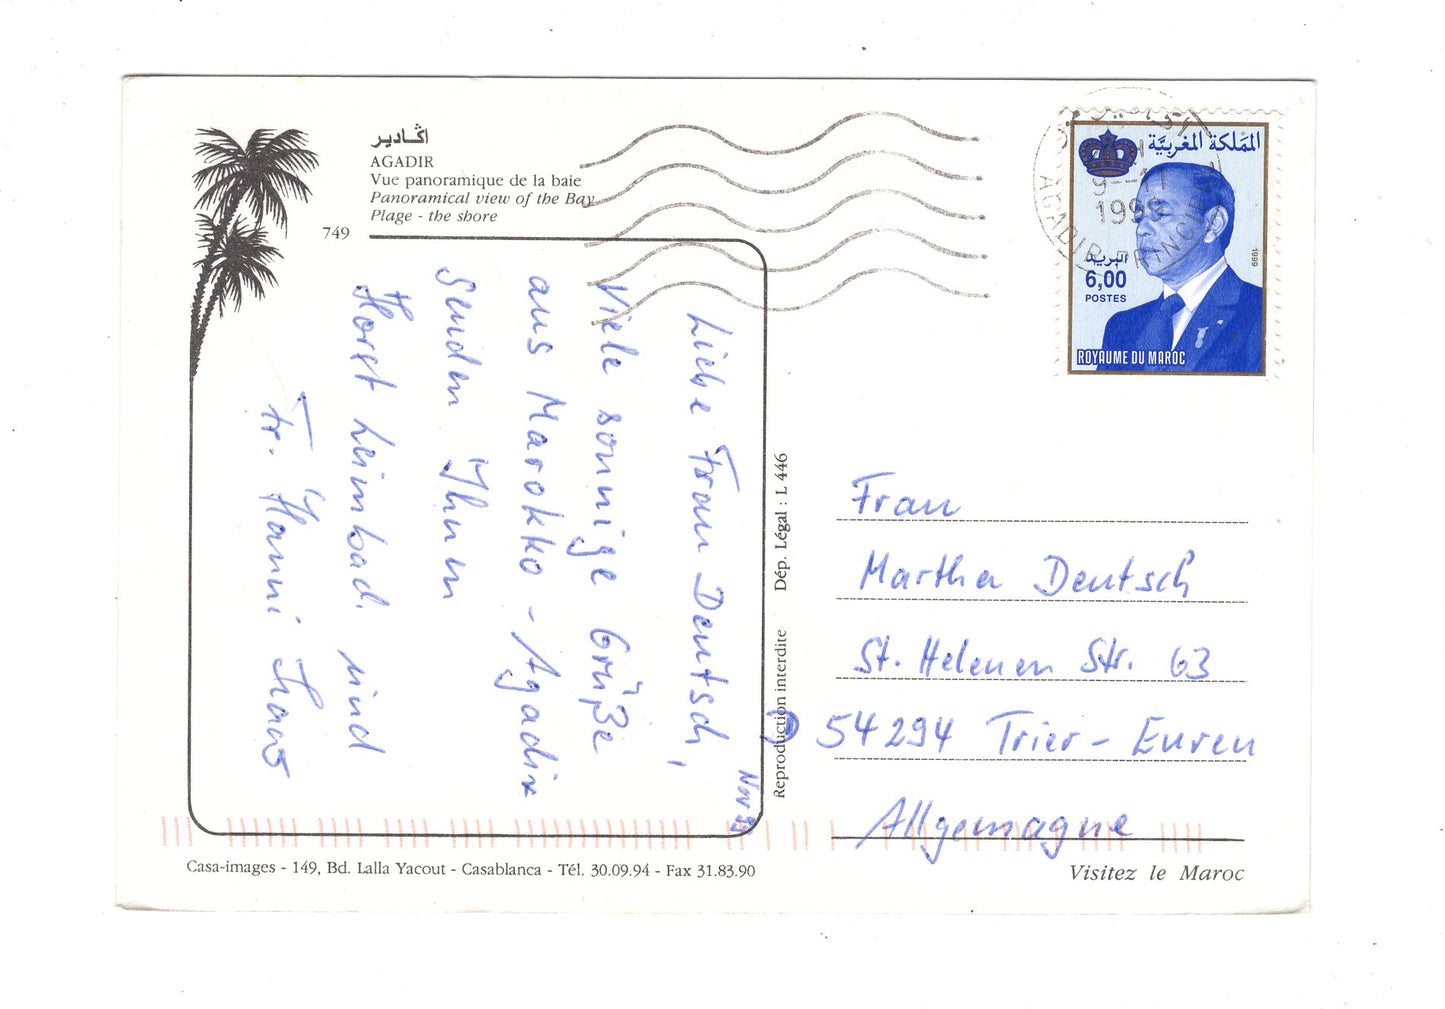 اڭادير
AGADIR
Vue panoramique de la baie
Panoramical view of the Bay
Plage - the shore
749
Nov 99
Liebe Frau Deutsch,
Viele sonnige Grüße
aus Marokko - Agadir
senden Ihnen
Horst Leimbach und
Fr. Hanni
Dép. Légal : L 446
Reproduction interdite
المملكة المغربية
1999
AGADIR PRINCIPAL
البريد
6,00
POSTES
1999
ROYAUME DU MAROC
Frau
Martha Deutsch
St. Helenen Str. 63
D 54294 Trier - Euren
Allgemagne
Casa-images - 149, Bd. Lalla Yacout - Casablanca - Tél. 30.09.94 - Fax 31.83.90
Visitez le Maroc